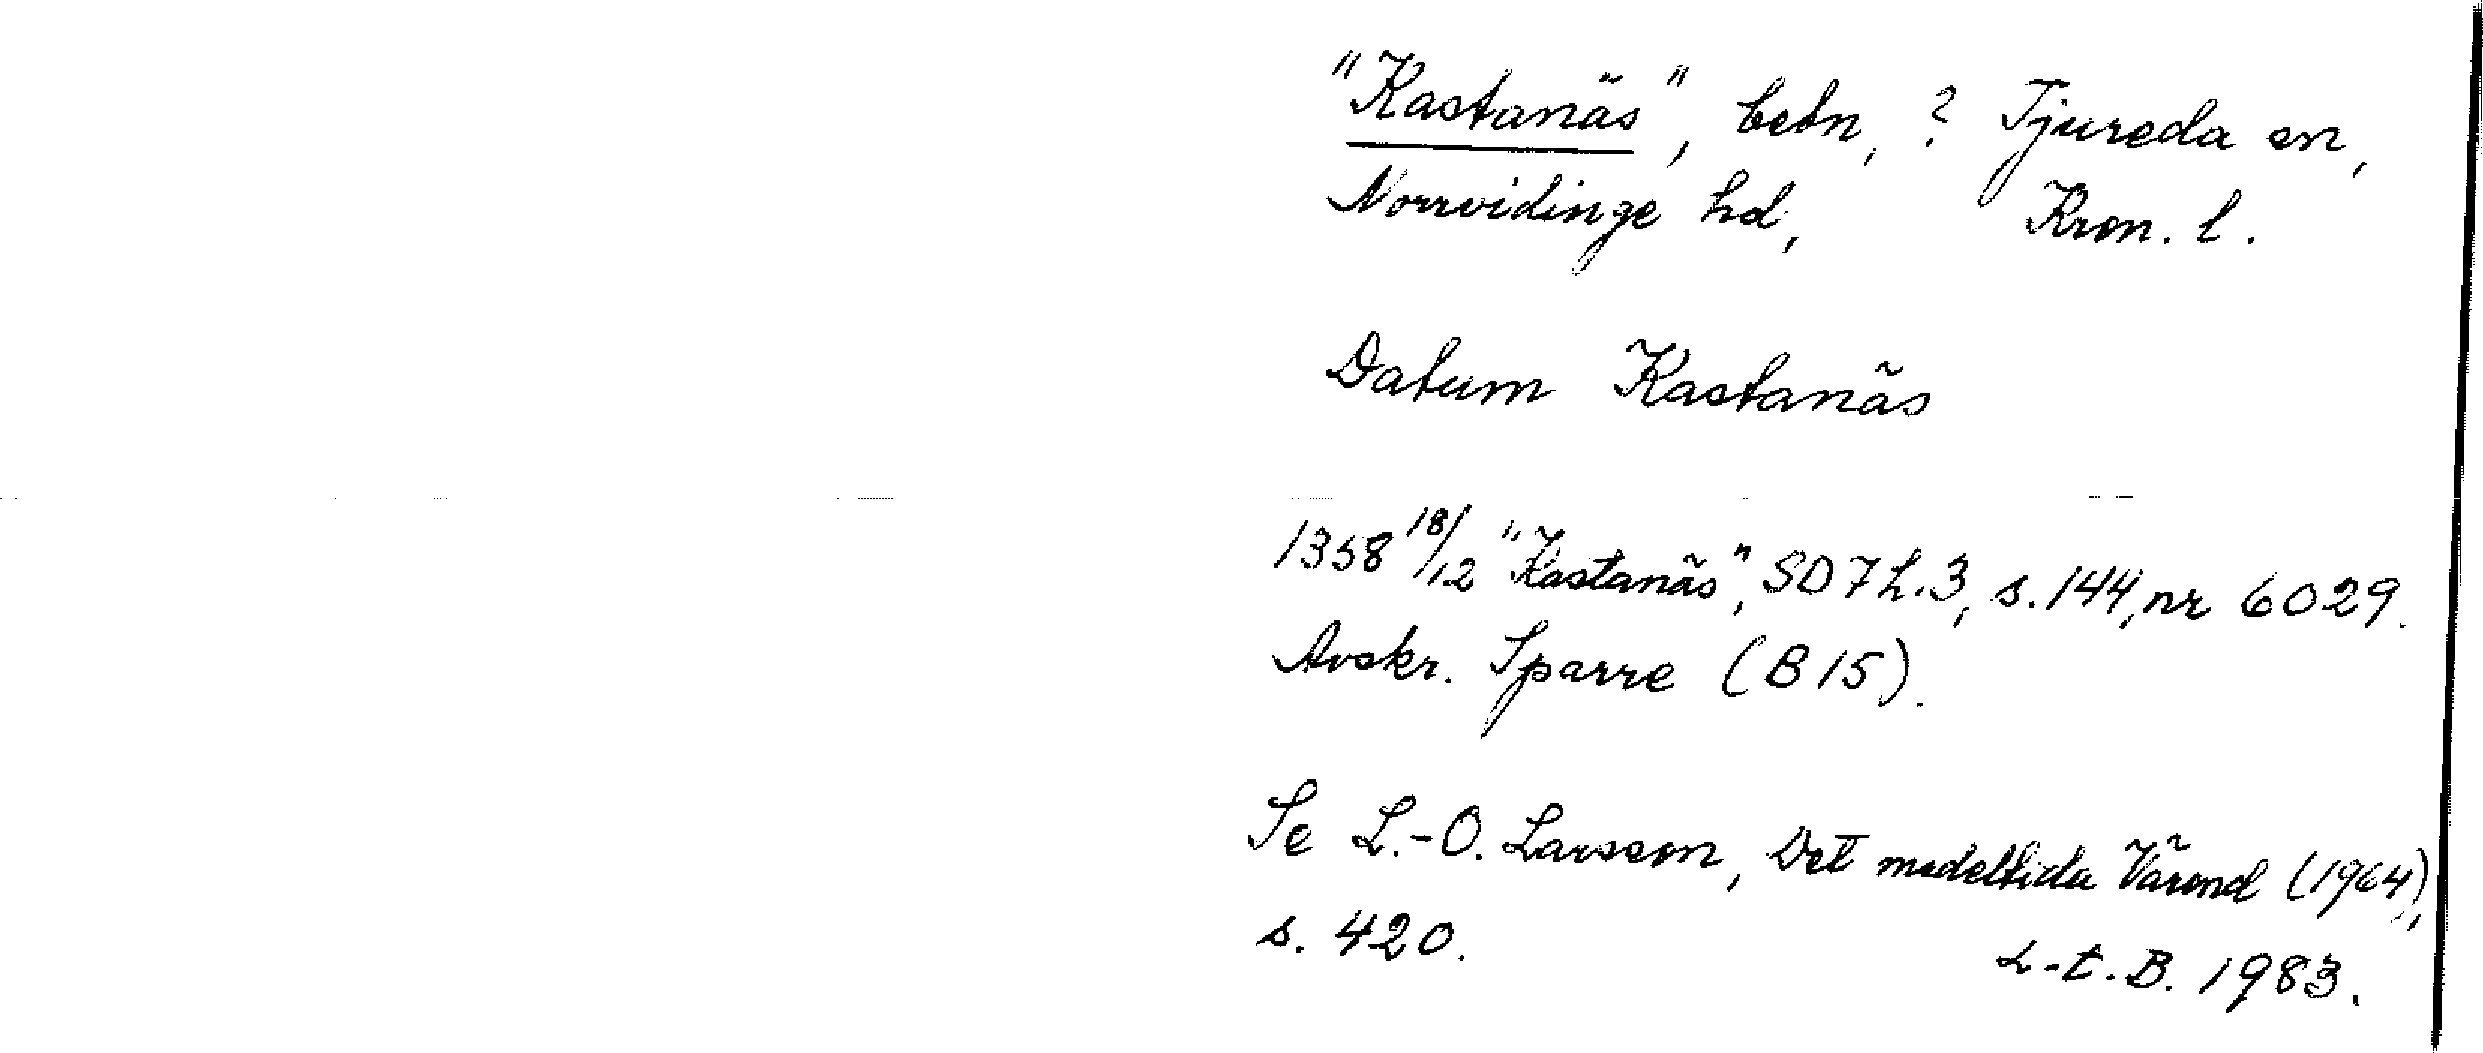 "Kastanäs", bebn, ? Tjureda sn,
Norrvidinge hd, Kron. l.
Datum Kastanäs
1358 18/12 "Kastanäs", SD 7 h. 3, s. 144, nr 6029.
Avskr. Sparre (B 15).
Se L.-O. Larsson, Det medeltida Värend (1964),
s. 420.
L-t. B. 1983.